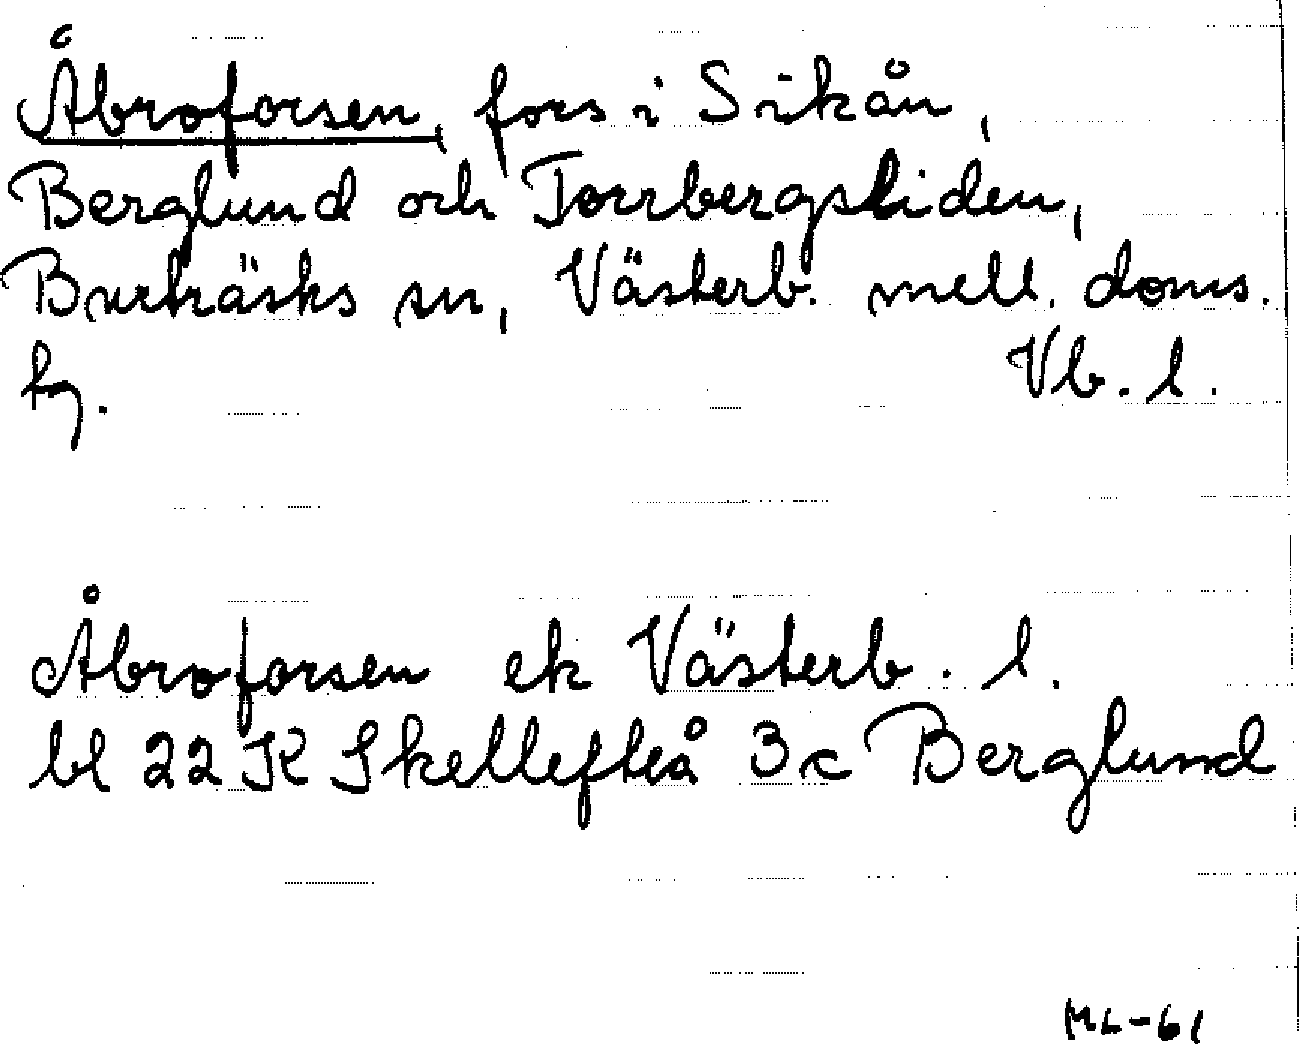 Åbroforsen, fors i Sikån,
Berglund och Torrbergsliden,
Burträsks sn, Västerb. mell. doms.
hg. Vb. l.
Åbroforsen ek Västerb. l.
bl 22 K Skellefteå 3c Berglund
ML-61